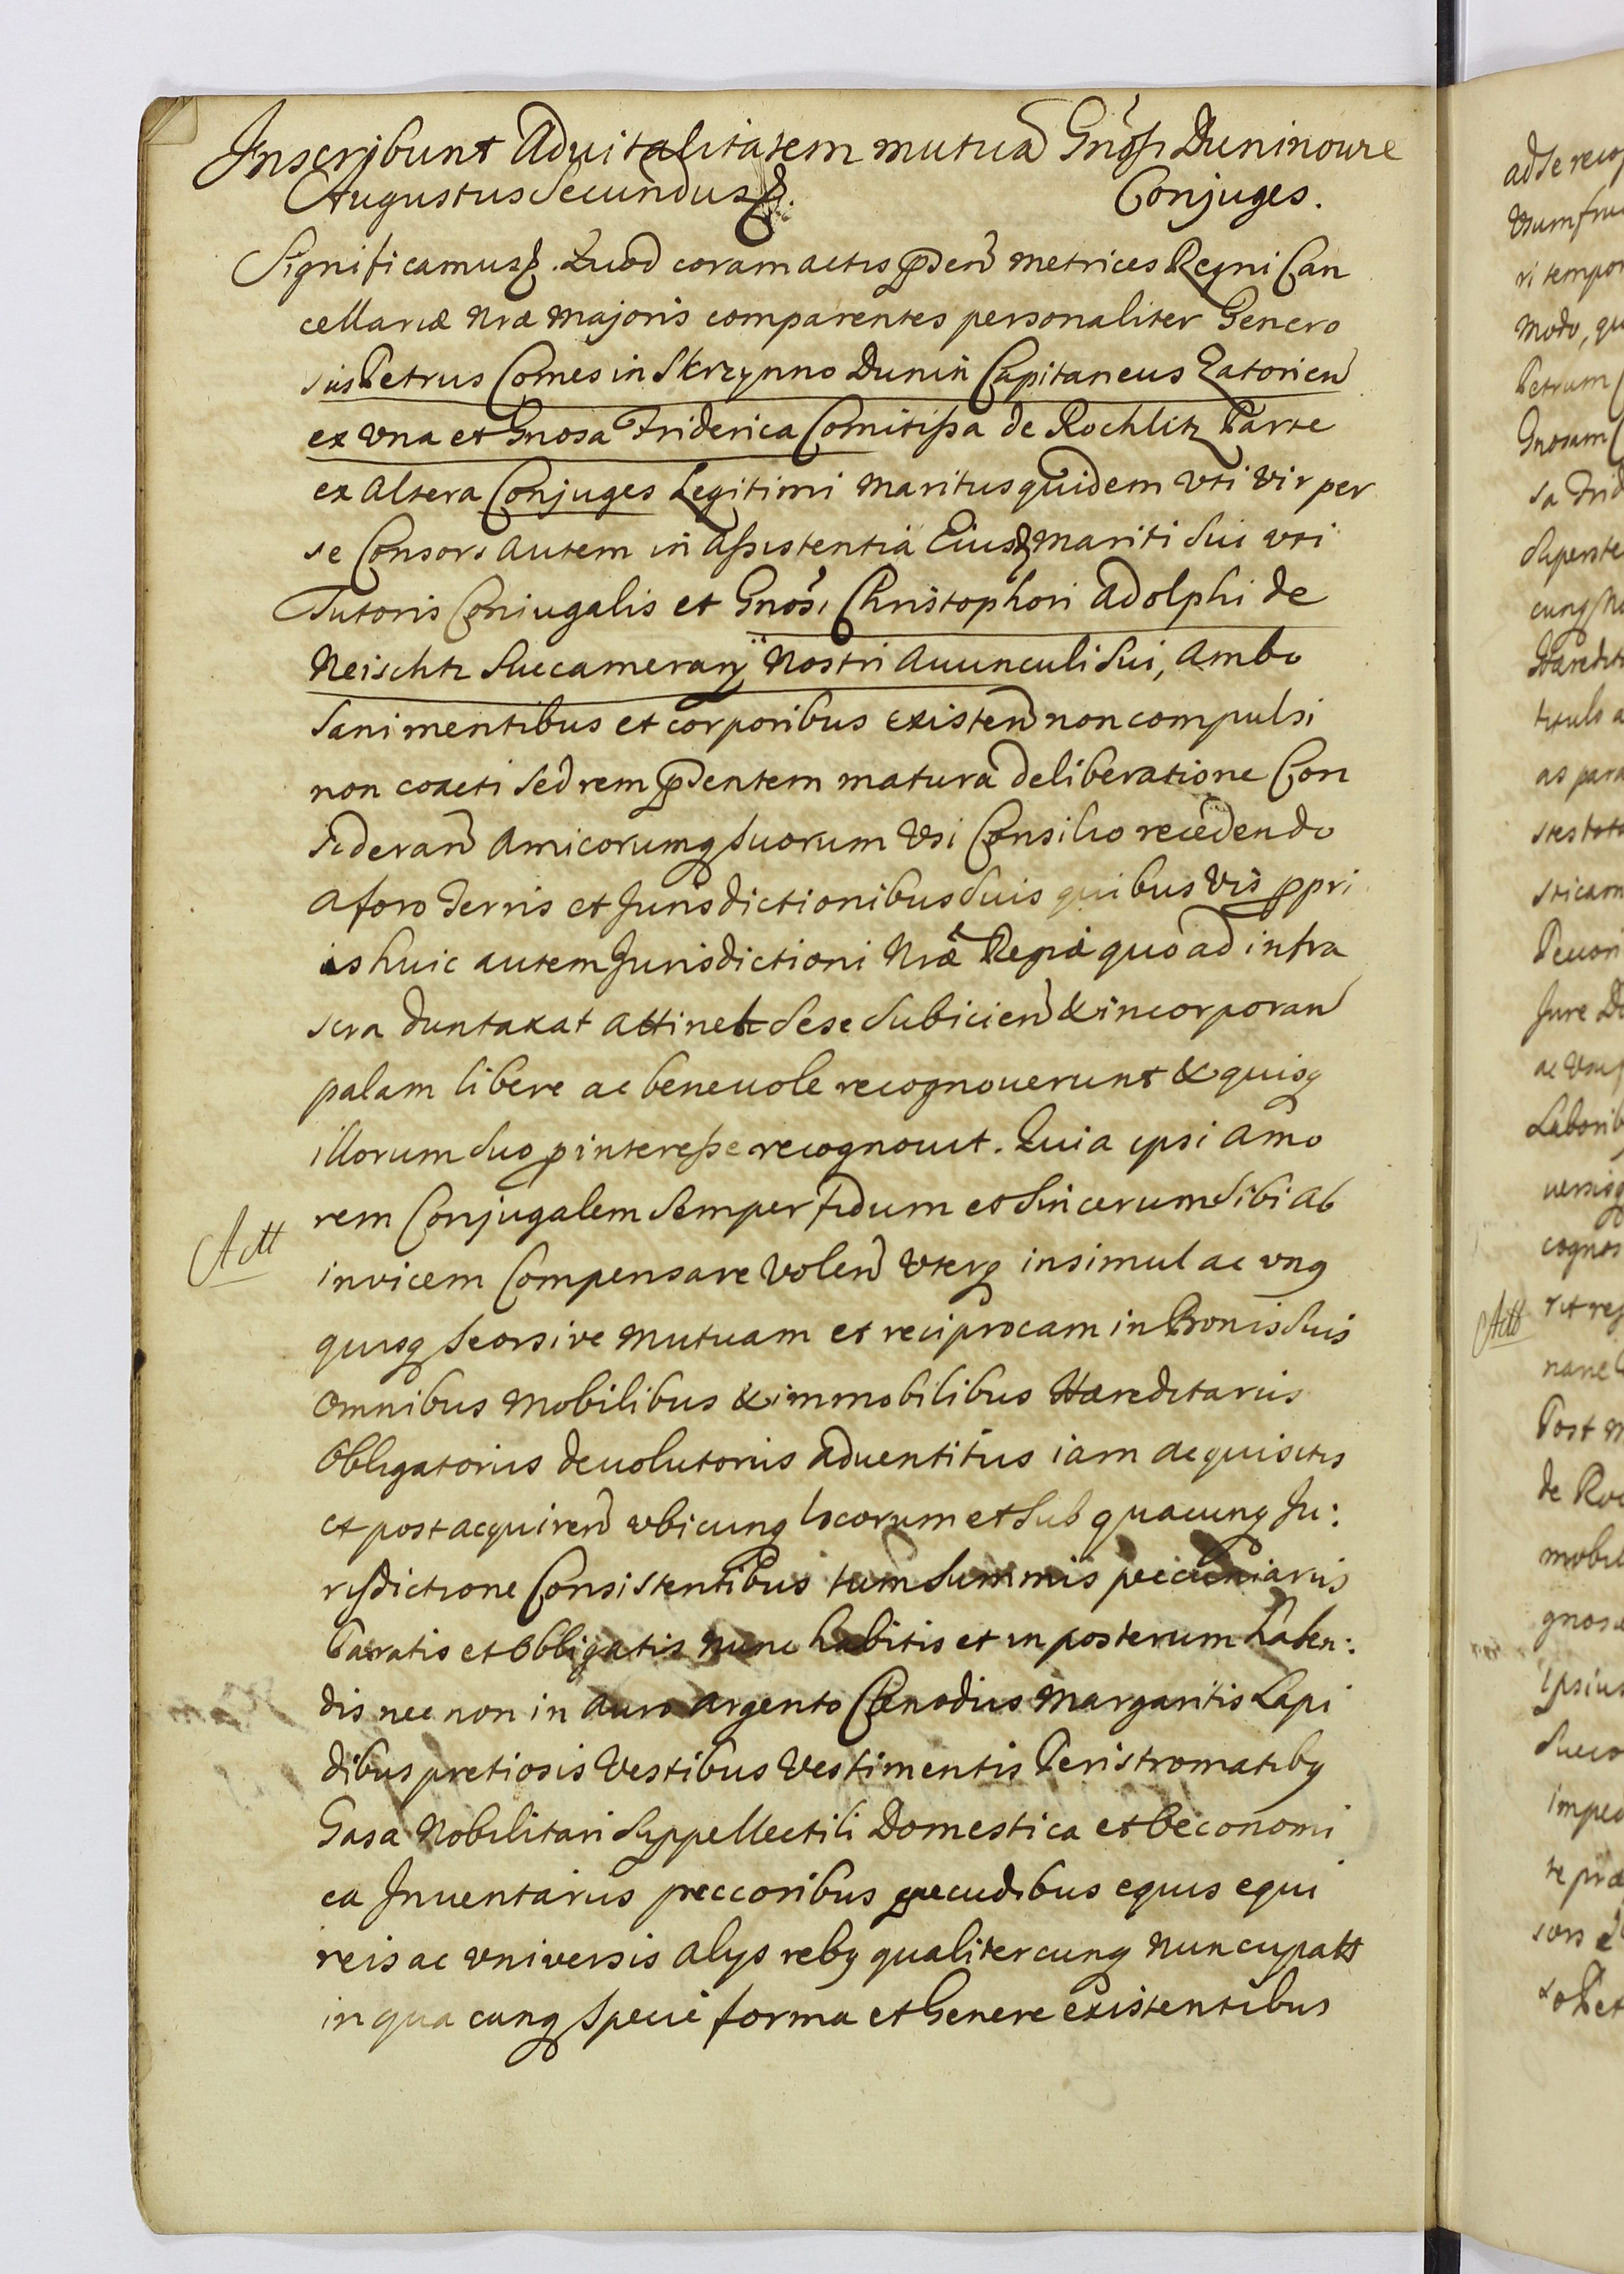 Inscribunt Aduitalitatem mutuã Gnõsi Duninowie
Augustus Secundus &. Conjuges.
Significamus &. Quod coram actis p̃den̄ metrices Regni Can
cellariæ Nræ Majoris comparentes personaliter Genero
sus Petrus Comes in Skrzynno Dunin Capitaneus Zatorien̄
ex vna et Gnosa Friderica Comitißa de Rochlitz Parte
ex Altera Conjuges Legitimi Maritus quidem vti vir per
se Consors autem in aßistentia Eiusq Mariti Sui vti
Tutoris Coniugalis et Gnosi Christophori Adolphi de
Neischtz Succamerarÿ Nostri Auunculi Sui, Ambo
Sani mentibus et corporibus existen̄ non compulsi
non coacti Sed rem p̃sentem matura deliberatione Con
sideran̄ Amicorumq Suorum Vsi Consilio recedendo
a foro Terris et Jurisdictionibus Suis quibus vis ppri
is huic autem Jurisdictioni Nræ Regiæ quo ad infra
scra duntaxat attinet Sese Subicien̄ & incorporan̄
palam libere ac beneuole recognouerunt & quisq
illorum Suo p interesse recognouit. Quia ipsi amo
rem Conjugalem Semper fidum et Sincerum Sibi ab
invicem Compensare volen̄ vterq insimul ac vnq
quisq Seorsive Mutuam et reciprocam in Bonis Suis
Omnibus Mobilibus & immobilibus Hæreditariis
Obligatoriis deuolutoriis aduentitiis iam acquisitis
et post acquiren̄ vbicunq locorum et Sub quacunq Ju:
risdictione Consistentibus tum Summis pecuniariis
Paratis et Obligatis nunc habitis et in posterum haben:
dis nec non in Auro Argento Clenodiis Margaritis Lapi
dibus pretiosis Vestibus Vestimentis Peristromatibq
Gasa Nobilitari Suppellectili Domestica et Oeconomi
ca Inuentariis peccoribus pecudibus equis equi
reis ac vniversis alys rebq qualitercunq Nuncupatt
in qua cunq Specie forma et Genere existentibus